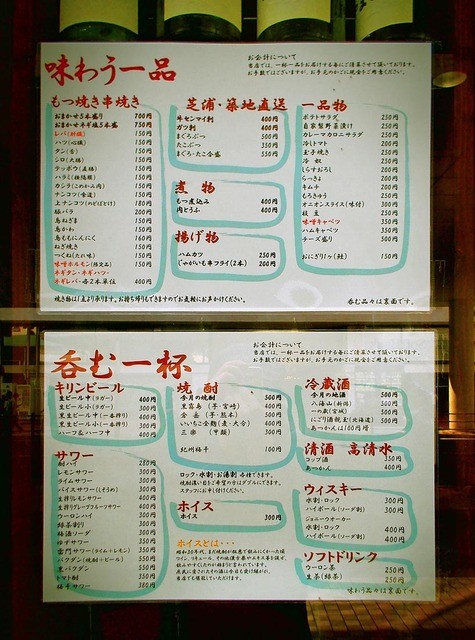 味わう一品
お会計について
当店では、一杯一品をお届けする毎にご清算させて頂いております。
お手数ではございますが、お手元のかごに現金をご用意ください。
もつ焼き串焼き
おまかせ5本盛り 700円
おまかせネギ塩5本盛 750円
レバ(肝臓) 150円
ハツ(心臓) 150円
タン(舌) 150円
シロ(大腸) 150円
テッポウ(直腸) 150円
ハラミ(横隔膜) 150円
カシラ(こめかみ肉) 150円
ナンコツ(食道) 150円
上ナンコツ(のどぼとけ) 180円
豚バラ 200円
鳥ねぎま 150円
鳥かわ 150円
鳥ももにんにく 160円
ねぎ焼き 150円
つくね(たれ味) 150円
味噌ホルモン 150円
ネギタン・ネギハツ・
ネギレバ・各2本単位 400円
芝浦・築地直送
牛センマイ刺 400円
ガツ刺 400円
まぐろぶつ 500円
たこぶつ 350円
まぐろ・たこ合盛 550円
煮物
もつ煮込み 400円
肉とうふ 400円
揚げ物
ハムカツ 250円
じゃがいも串フライ(2本) 200円
一品物
ポテトサラダ 250円
自家製野菜漬け 250円
カレーマカロニサラダ 250円
冷しトマト 250円
玉子焼き 250円
冷奴 250円
しらすおろし 250円
らっきょ 250円
キムチ 250円
もろきゅう 250円
オニオンスライス(味付) 300円
枝豆 250円
味噌キャベツ 250円
ハムキャベツ 350円
チーズ盛り 500円
おにぎり1ヶ(鮭) 150円
焼き物は1本より承ります。お持ち帰りもできますのでお気軽にお声かけください。
呑む品々は裏面です。
呑む一杯
お会計について
当店では、一杯一品をお届けする毎にご清算させて頂いております。
お手数ではございますが、お手元のかごに現金をご用意ください。
キリンビール
生ビール中(ラガー) 400円
生ビール小(ラガー) 300円
黒生ビール中(一番搾り) 400円
黒生ビール小(一番搾り) 300円
ハーフ&ハーフ中 400円
サワー
酎ハイ 280円
レモンサワー 300円
ライムサワー 300円
バイスサワー(しそうめ) 300円
生搾りレモンサワー 400円
生搾りグレープフルーツサワー 400円
ウーロンハイ 300円
緑茶割り 300円
梅酒ソーダ 300円
ゆずサワー 350円
雷門サワー(ライム+レモン) 350円
バクダン(焼酎+ビール) 550円
黒バクダン 550円
トマト割 350円
梅干サワー 380円
焼酎
今月の焼酎 500円
黒霧島(芋・宮崎) 400円
金峰(芋・熊本) 400円
いいちこ全麹(麦・大分) 400円
三楽(甲類) 300円
紀州梅干 100円
ロック・水割・お湯割 各種できます。
焼酎濃い目をご希望の方はダブルにできます。
スタッフにお申し付けください。
ホイス
ホイス 300円
ホイスとは・・・
冷蔵酒
今月の地酒 500円
八海山(新潟) 500円
一の蔵(宮城) 500円
にごり酒親玉(北海道) 500円
あつかんは100円増
清酒 高清水
コップ酒 350円
あつかん 400円
ウィスキー
水割・ロック 300円
ハイボール(ソーダ割) 300円
ジョニーウォーカー
水割・ロック 400円
ハイボール(ソーダ割) 400円
ソフトドリンク
ウーロン茶 250円
生茶(緑茶) 250円
味わう品々は裏面です。